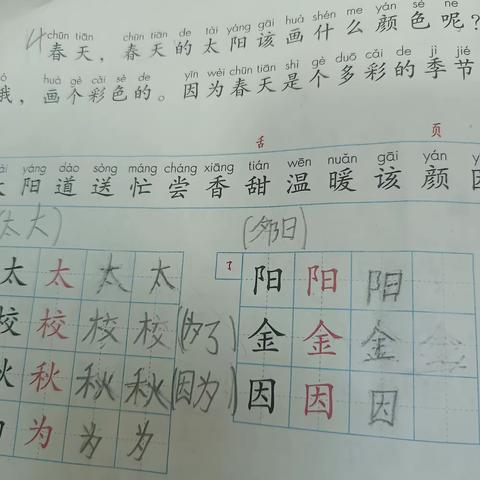 4
chūn tiān chūn tiān de tài yáng gāi huà shén me yán sè ne
春天，春天的太阳该画什么颜色呢？
huà gè cǎi sè de yīn wèi chūn tiān shì gè duō cǎi de jì jié
哦，画个彩色的。因为春天是个多彩的季节
舌 页
yáng dào sòng máng cháng xiāng tián wēn nuǎn gāi yán
太阳道送忙尝香甜温暖该颜因
(太大) (夕阳日)
太太太太 了 阳阳阳
校校校校 (为了) 金金金金
秋秋秋秋 (因为) 因因因
为为为为